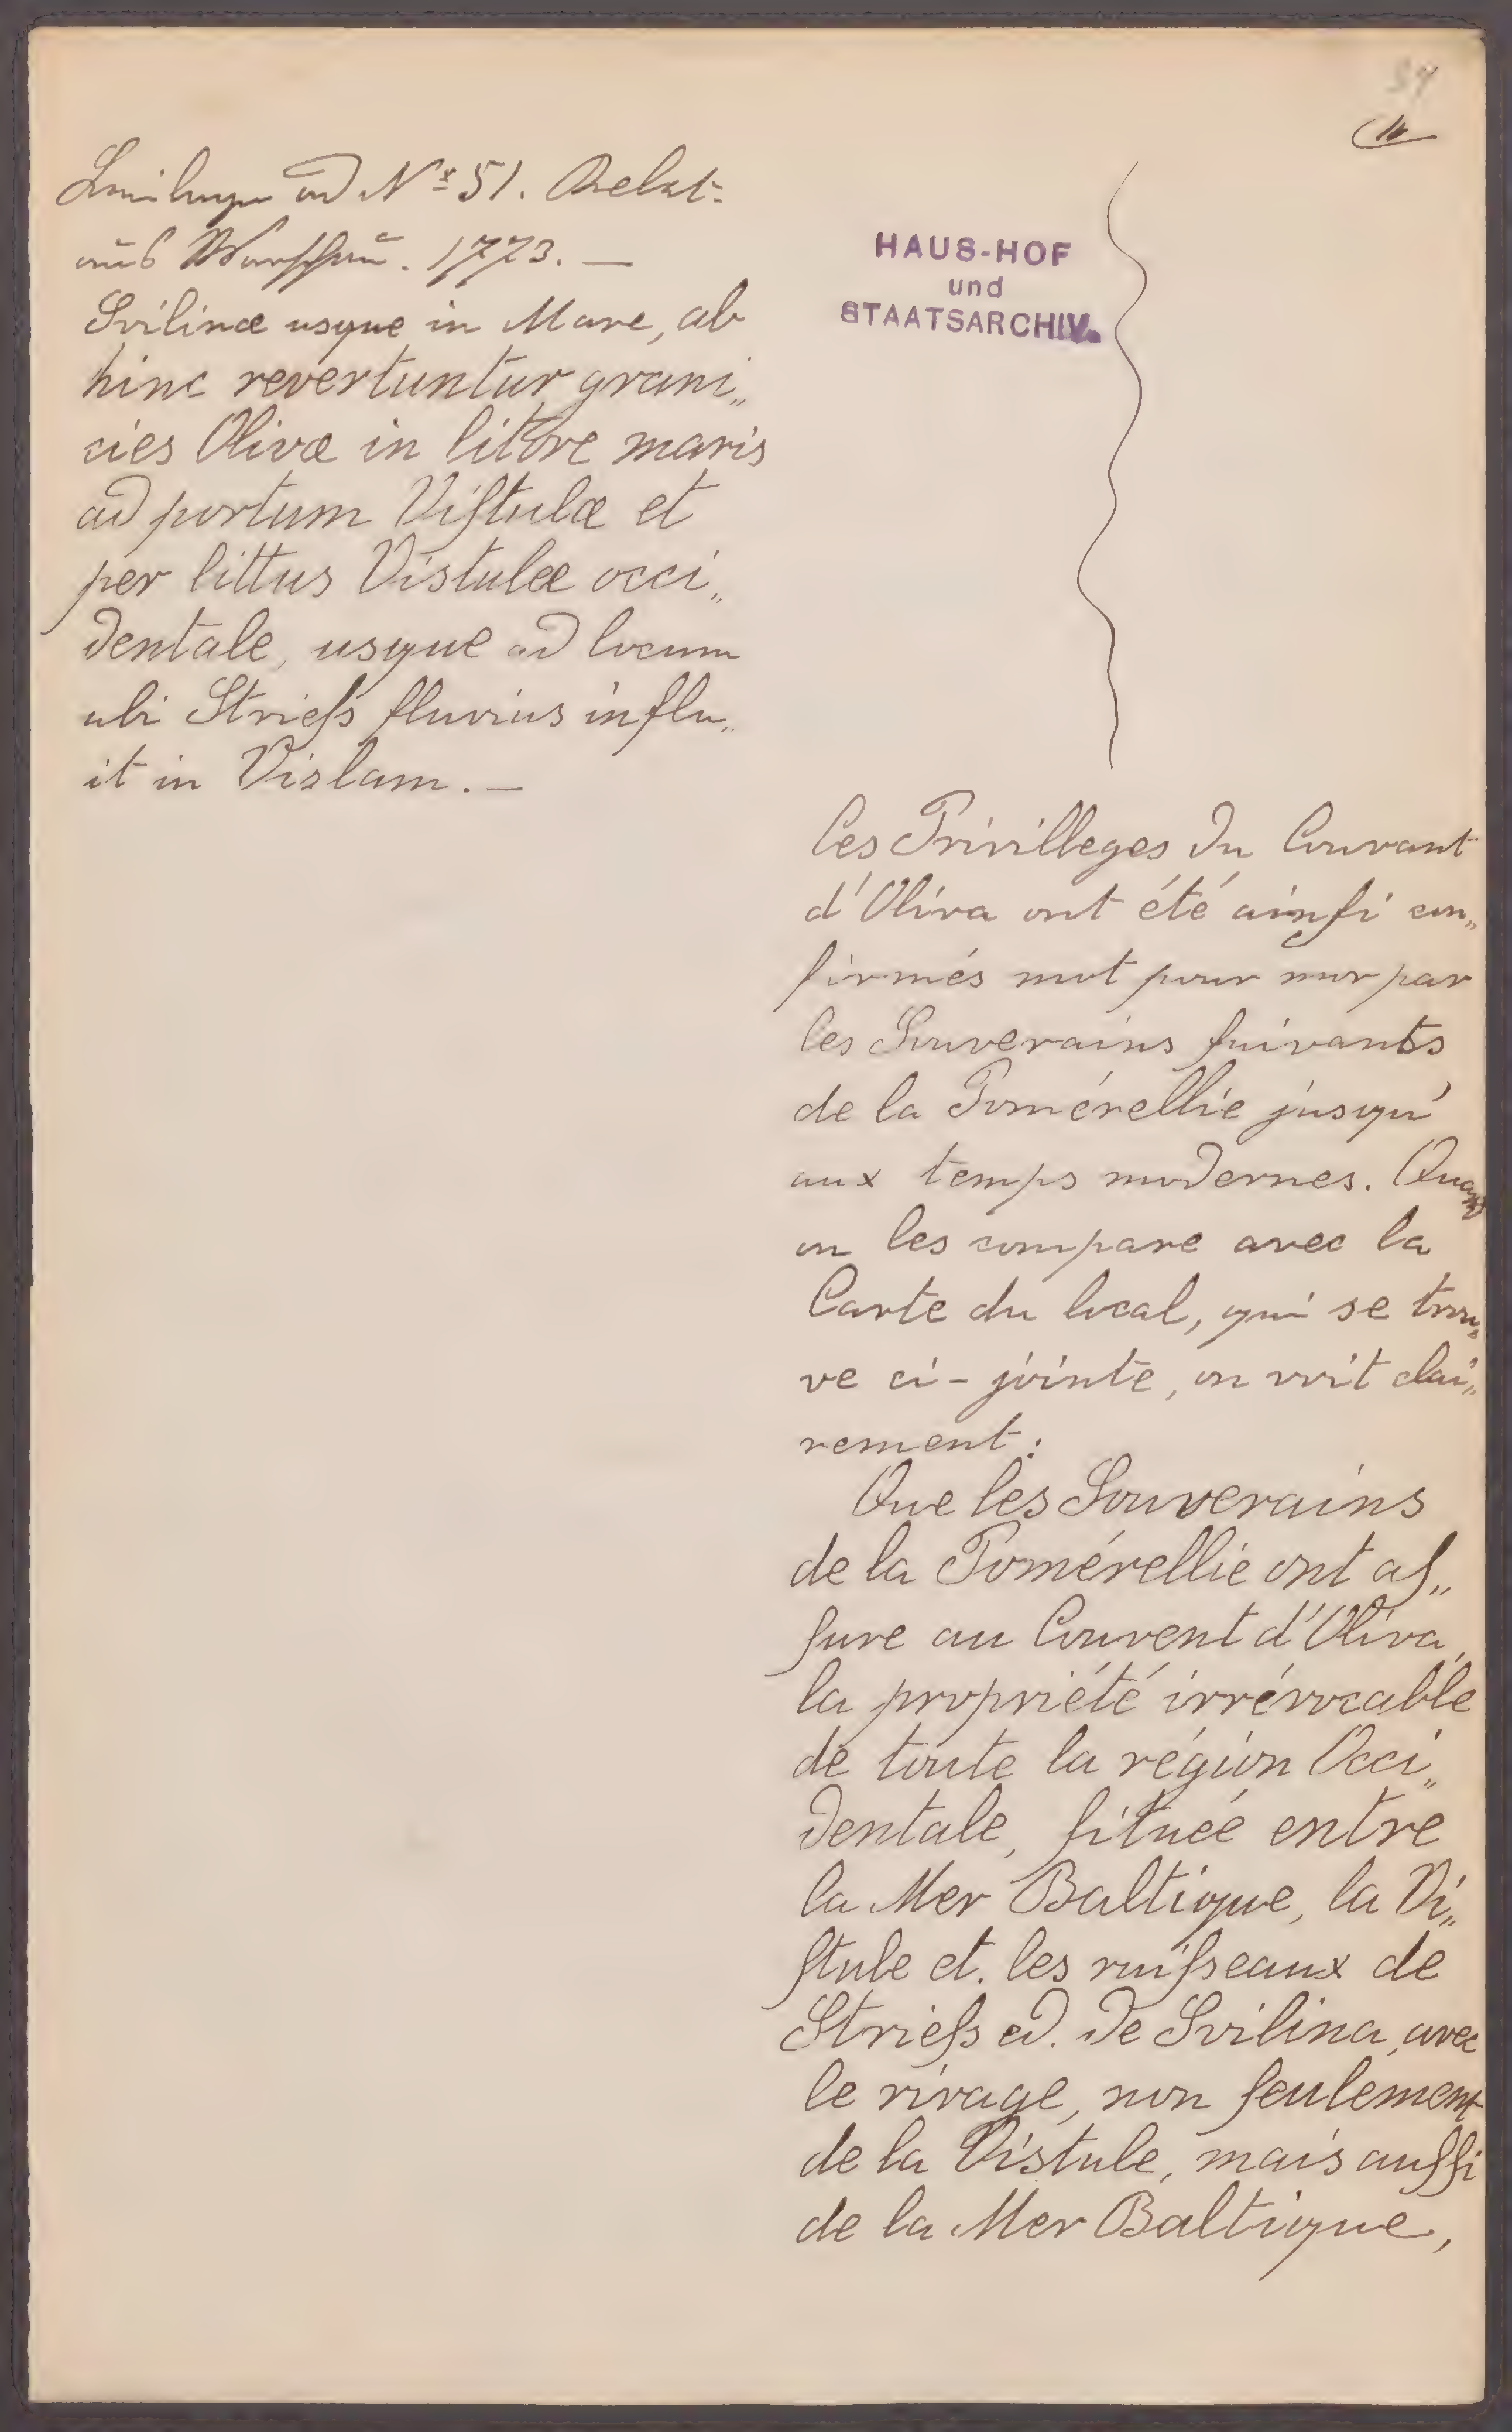 34
Beilage ad Nº 51. Relat.
aus Warschau. 1773. —
Svilinæ usque in Mare, ab
hinc revertuntur grani„
cies Olivæ in littore maris
ad portum Viſtulæ et
per littus Vistulæ occi„
dentale, usque ad locum
ubi Strieſs fluvius influ„
it in Vislam. —
HAUS-HOF
und
STAATSARCHIV.
Ces Privilleges du Couvant
d'Oliva ont été ainſi con„
firmés mot pour mot par
les Souverains ſuivants
de la Pomérellie jusqu'
aux temps modernes. Quand
on les compare avec la
Carte du local, qui se trou„
ve ci-jointe, on voit clai„
rement:
Que les Souverains
de la Pomérellie ont aſ„
ſure au Couvent d'Oliva,
la propriété irrévocable
de toute la région Occi„
dentale, ſituée entre
la Mer Baltique, la Vi„
ſtule et. les ruiſseaux de
Strieſs ed. de Svilina, avec
le rivage, non ſeulement
de la Vistule, mais auſſi
de la Mer Baltique,